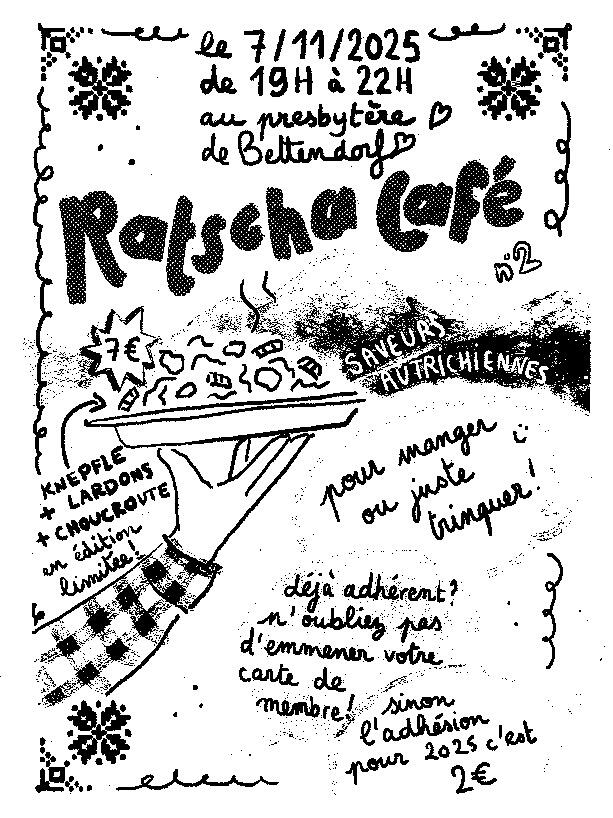 le 7/11/2025
de 19H à 22H
au presbytère
de Bettendorf
Ratscha Café
n°2
7€
SAVEURS
AUTRICHIENNES
KNEPFLE
+ LARDONS
+ CHOUCROUTE
en édition
limitée!
pour manger
ou juste
trinquer!
déjà adhérent?
n'oubliez pas
d'emmener votre
carte de
membre!
sinon
l'adhésion
pour 2025 c'est
2€